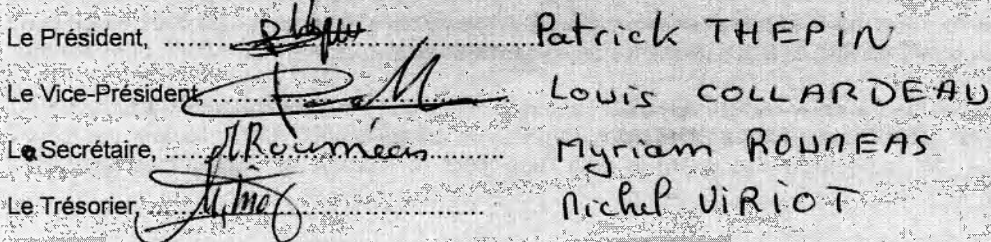 Le Président, ........ Patrick THEPIN
Le Vice-Président, ........ Louis COLLARDEAU
La Secrétaire, ........ M.Rouméas ........ Myriam ROUMEAS
Le Trésorier, ........ Michel VIRIOT